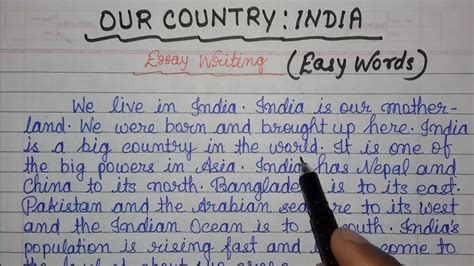 OUR COUNTRY : INDIA
Essay Writing (Easy Words)
We live in India. India is our mother-
land. We were born and brought up here. India
is a big country in the world. It is one of
the big powers in Asia. India has Nepal and
China to its north. Bangladesh is to its east.
Pakistan and the Arabian sea are to its west
and the Indian Ocean is to south. India's
population is rising fast and come to
the level of about